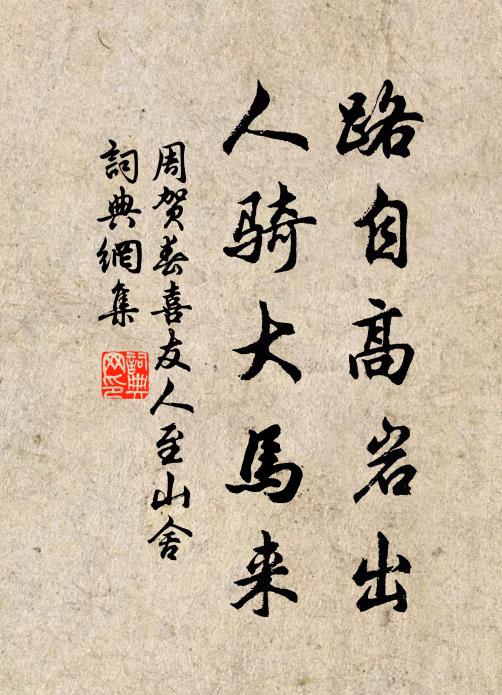 路自高岩出
人骑大馬来
周贺春喜友人至山舍
詞典網集
詞典網印